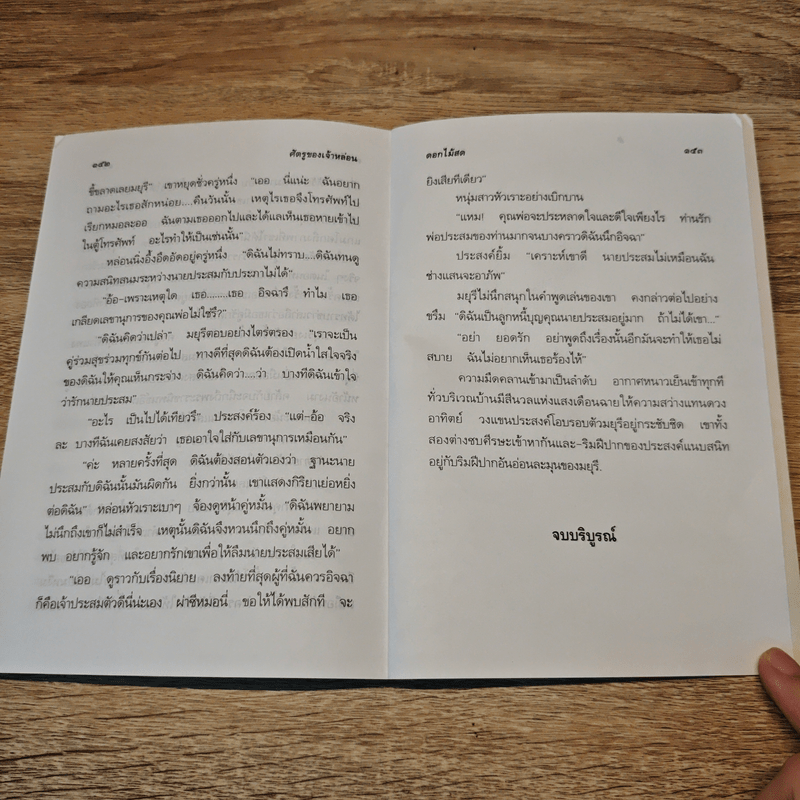 ๑๕๒ ศัตรูของเจ้าหล่อน
ขี้ขลาดเลยมยุรี" เขาหยุดชั่วครู่หนึ่ง "เออ นี่แน่ะ ฉันอยาก
ถามอะไรเธอสักหน่อย....คืนวันนั้น เหตุไรเธอจึงโทรศัพท์ไป
เรียกหมอละออ ฉันตามเธอออกไปและได้แลเห็นเธอหายเข้าไป
ในตู้โทรศัพท์ อะไรทำให้เป็นเช่นนั้น"
หล่อนนิ่งอึ้งอึดอัดอยู่ครู่หนึ่ง "ดิฉันไม่ทราบ....ดิฉันทนดู
ความสนิทสนมระหว่างนายประสมกับประภาไม่ได้"
"อ้อ-เพราะเหตุใด เธอ........เธอ อิจฉารึ ทำไม เธอ
เกลียดเลขานุการของคุณพ่อไม่ใช่รึ?"
"ดิฉันคิดว่าเปล่า" มยุรีตอบอย่างไตร่ตรอง "เราจะเป็น
คู่ร่วมสุขร่วมทุกข์กันต่อไป ทางดีที่สุดดิฉันต้องเปิดน้ำใสใจจริง
ของดิฉันให้คุณเห็นกระจ่าง ดิฉันคิดว่า....ว่า บางทีดิฉันเข้าใจ
ว่ารักนายประสม"
"อะไร เป็นไปได้เทียวรึ" ประสงค์ร้อง "แต่-อ้อ จริง
ละ บางทีฉันเคยสงสัยว่า เธอเอาใจใส่กับเลขานุการเหมือนกัน"
"ค่ะ หลายครั้งที่สุด ดิฉันต้องสอนตัวเองว่า ฐานะนาย
ประสมกับดิฉันนั้นมันผิดกัน ยิ่งกว่านั้น เขาแสดงกิริยาเย่อหยิ่ง
ต่อดิฉัน" หล่อนหัวเราะเบาๆ จ้องดูหน้าคู่หมั้น "ดิฉันพยายาม
ไม่นึกถึงเขาก็ไม่สำเร็จ เหตุนั้นดิฉันจึงหวนนึกถึงคู่หมั้น อยาก
พบ อยากรู้จัก และอยากรักเขาเพื่อให้ลืมนายประสมเสียได้"
"เออ ดูราวกับเรื่องนิยาย ลงท้ายที่สุดผู้ที่ฉันควรอิจฉา
ก็คือเจ้าประสมตัวดีนี่น่ะเอง ผ่าซีหมอนี่ ขอให้ได้พบสักที จะ
ดอกไม้สด ๑๕๓
ยิงเสียทีเดียว"
หนุ่มสาวหัวเราะอย่างเบิกบาน
"แหม! คุณพ่อจะประหลาดใจและดีใจเพียงไร ท่านรัก
พ่อประสมของท่านมากจนบางคราวดิฉันนึกอิจฉา"
ประสงค์ยิ้ม "เคราะห์เขาดี นายประสมไม่เหมือนฉัน
ช่างแสนจะอาภัพ"
มยุรีไม่นึกสนุกในคำพูดเล่นของเขา คงกล่าวต่อไปอย่าง
ขรึม "ดิฉันเป็นลูกหนี้บุญคุณนายประสมอยู่มาก ถ้าไม่ได้เขา..."
"อย่า ยอดรัก อย่าพูดถึงเรื่องนั้นอีกมันจะทำให้เธอไม่
สบาย ฉันไม่อยากเห็นเธอร้องไห้"
ความมืดคลานเข้ามาเป็นลำดับ อากาศหนาวเย็นเข้าทุกที
ทั่วบริเวณบ้านมีสีนวลแห่งแสงเดือนฉายให้ความสว่างแทนดวง
อาทิตย์ วงแขนประสงค์โอบรอบตัวมยุรีอยู่กระชับชิด เขาทั้ง
สองต่างซบศีรษะเข้าหากันและ-ริมฝีปากของประสงค์แนบสนิท
อยู่กับริมฝีปากอันอ่อนละมุนของมยุรี.
จบบริบูรณ์